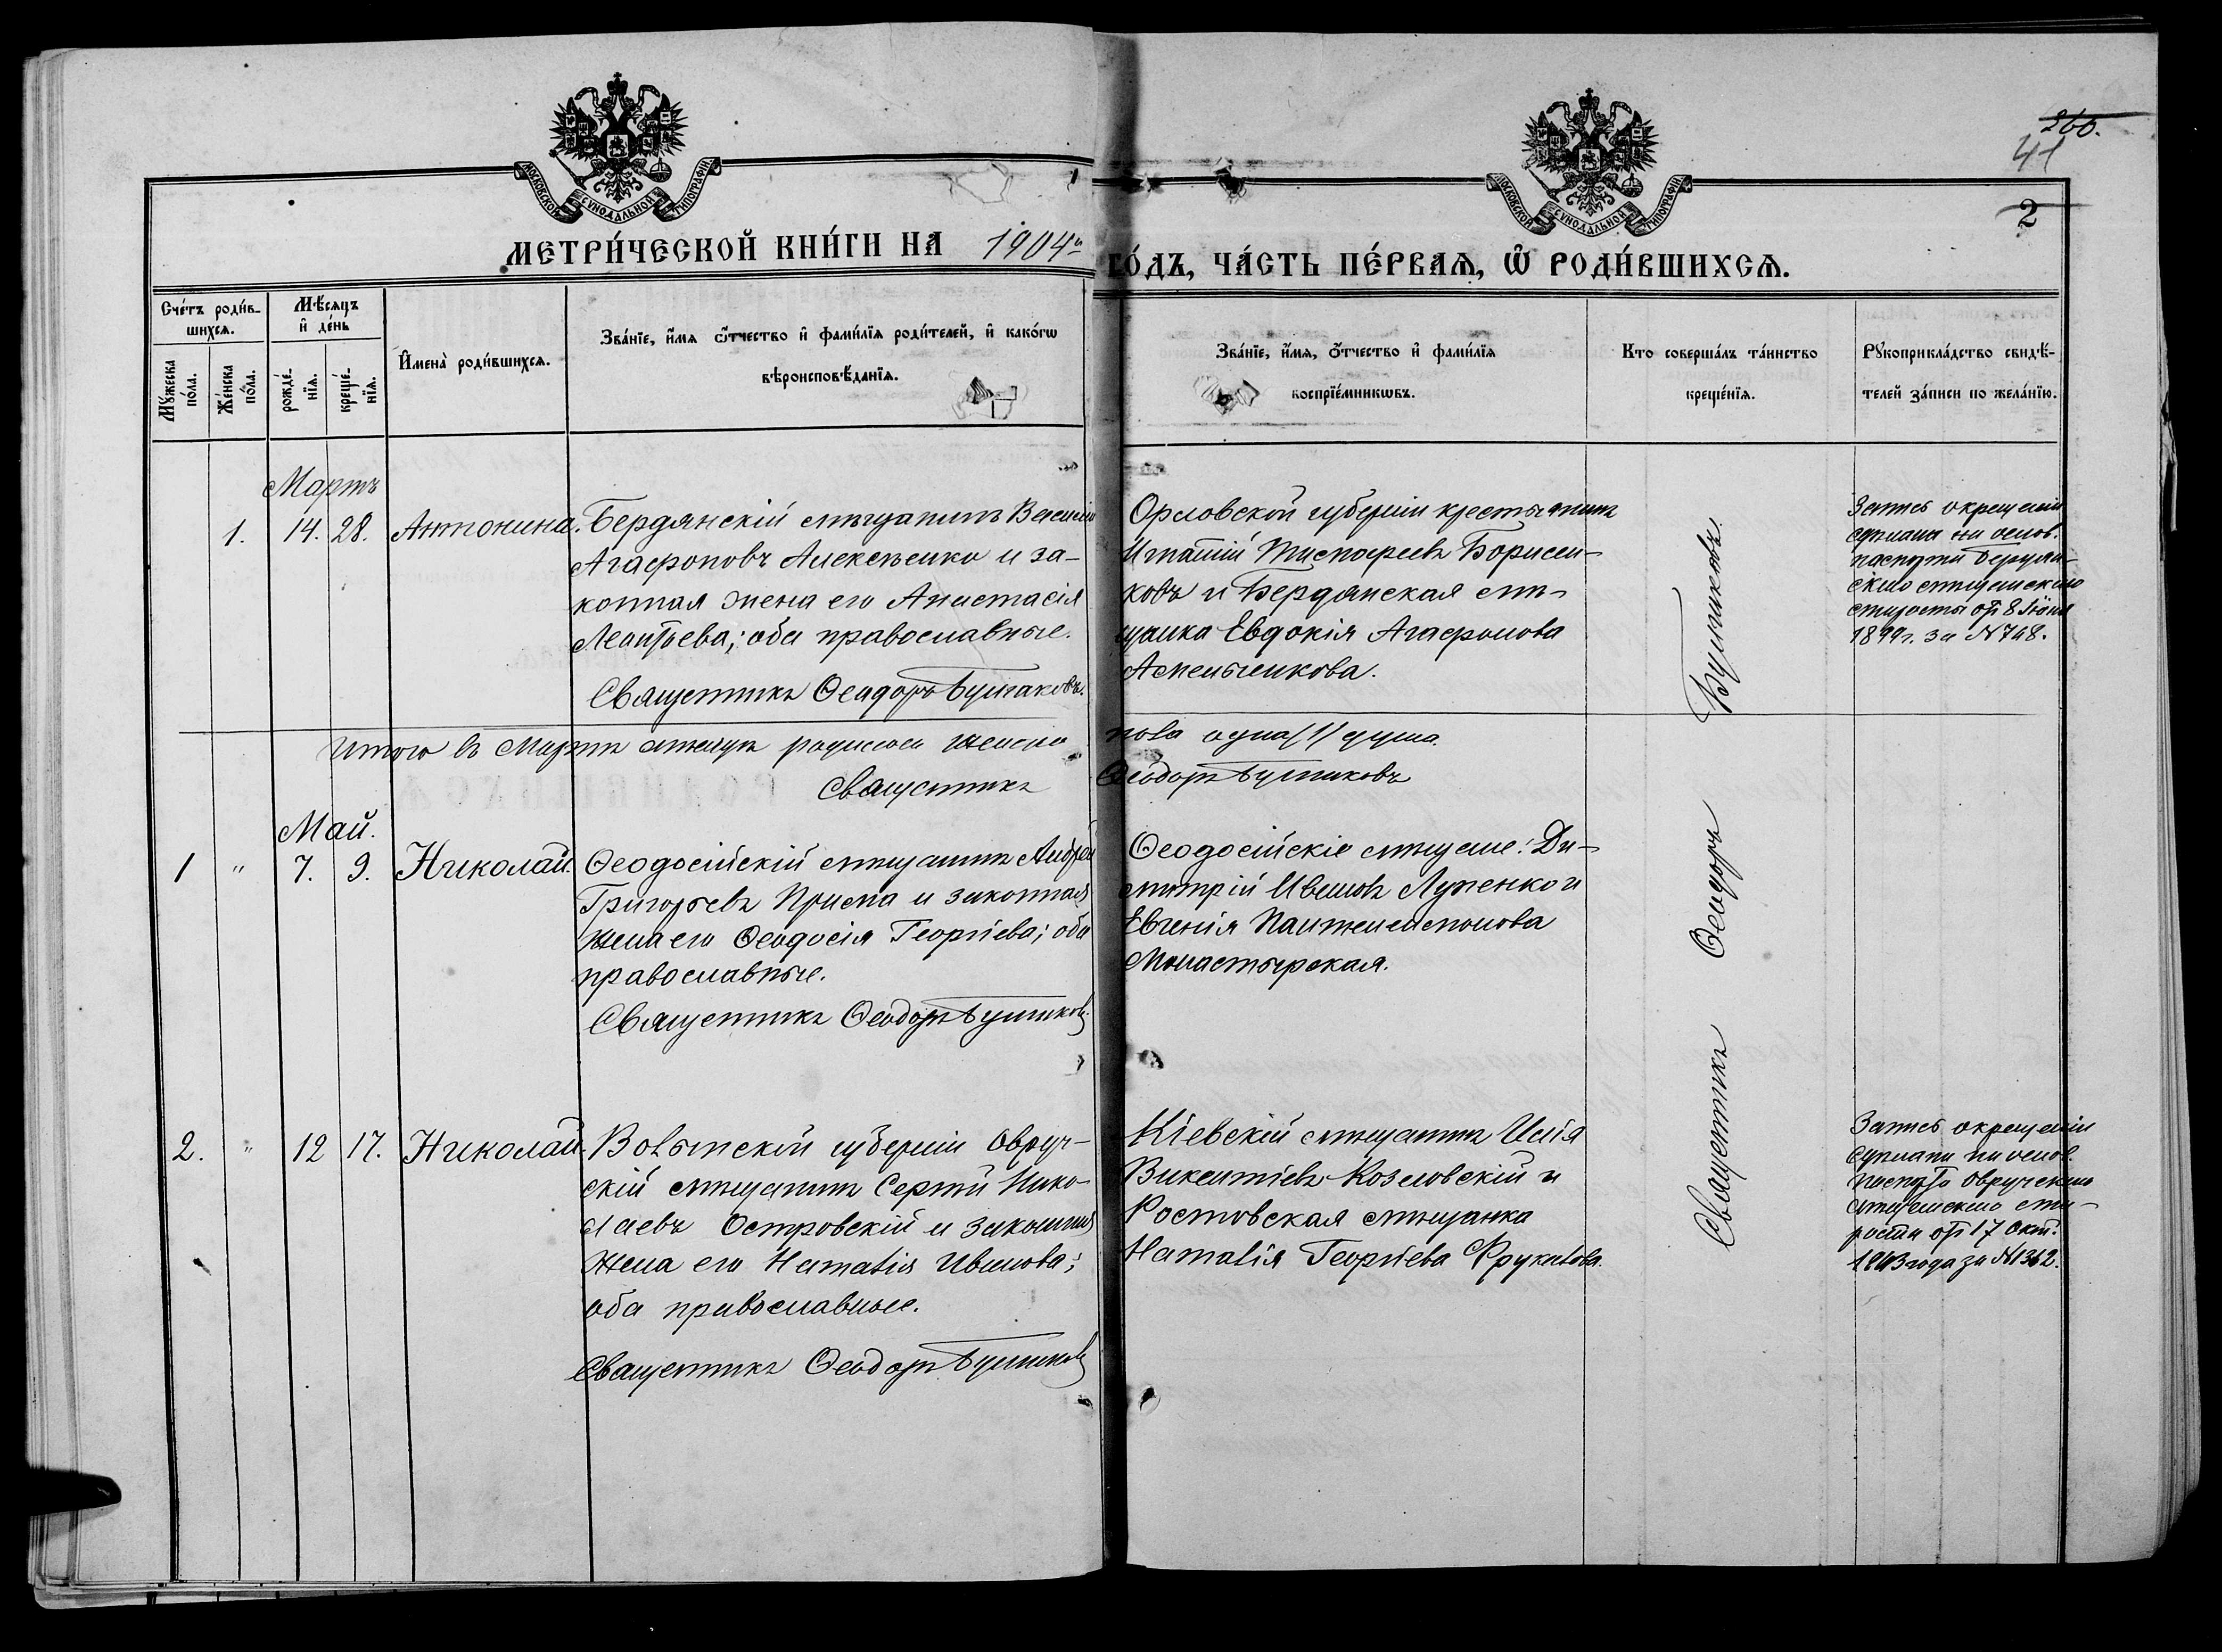 МОСКОВСКОЙ СѴНОДАЛЬНОЙ ТИПОГРАФІИ
МОСКОВСКОЙ СѴНОДАЛЬНОЙ ТИПОГРАФІИ
260.
41
2
МЕТРИ́ЧЕСКОЙ КНИ́ГИ НА 1904й
ГО́ДЪ, ЧА́СТЬ ПЕ́РВАЯ, Ѡ РОДИ́ВШИХСЯ.
Сче́тъ роди́в-
шихся.
Му́жеска по́ла.
Же́нска по́ла.
Мѣ́сяцъ
и де́нь
рожде́нїя.
креще́нїя.
Имена̀ роди́вшихся.
Зва́нїе, и́мя ѻ́тчество и фами́лїя роди́телей, и како́гѡ
вѣроисповѣ́данїя.
Зва́нїе, и́мя, ѻ́тчество и фами́лїя
воспрїе́мникѡвъ.
Кто соверша́лъ та́инство
креще́нїя.
Рꙋкоприкла́дство свидѣ́-
телей за́писи по жела́нїю.
Мартъ
1. 14. 28. Антонина. Бердянскій мѣщанинъ Василій
Агафоновъ Алексѣенко и за-
конная жена его Анастасія
Леонтьева; оба православные.
Священникъ Ѳеодоръ Булгаковъ.
Орловской губерніи крестьянинъ
Игнатій Борисен-
ковъ и Бердянская мѣ-
щанка Евдокія Агафонова
Запись о крещеніи
сдѣлана на основ.
паспорта Бердян-
скаго мѣщанскаго
старосты отъ 8 Іюня
1899г. за №748.
Итого въ Мартѣ мѣсяцѣ родилось женска
пола одна (1) душа.
Священникъ Ѳеодоръ Булгаковъ
Май.
1 " 7. 9. Николай. Ѳеодосійскій мѣщанинъ Андрей
Григорьевъ Приспа и законная
жена его Ѳеодосія Георгіева; оба
православные.
Священникъ Ѳеодоръ Булгаковъ.
Ѳеодосійскіе мѣщане: Ди-
митрій Ивановъ Луценко и
Евгенія Пантелеимонова
Монастырская.
2. " 12 17. Николай. Волынской губерніи Овруч-
скій мѣщанинъ Сергѣй Нико-
лаевъ Островскій и законная
жена его Наталія Иванова;
оба православные.
Священникъ Ѳеодоръ Булгаковъ
Кіевскій мѣщанинъ Илія
Викентіевъ Козловскій и
Ростовская мѣщанка
Наталія Георгіева
Запись о крещеніи
сдѣлана на основ.
паспорта Овручскаго
мѣщанскаго ста-
росты отъ 17 Окт.
1903 года за №1362.
Священникъ Ѳеодоръ Булгаковъ.